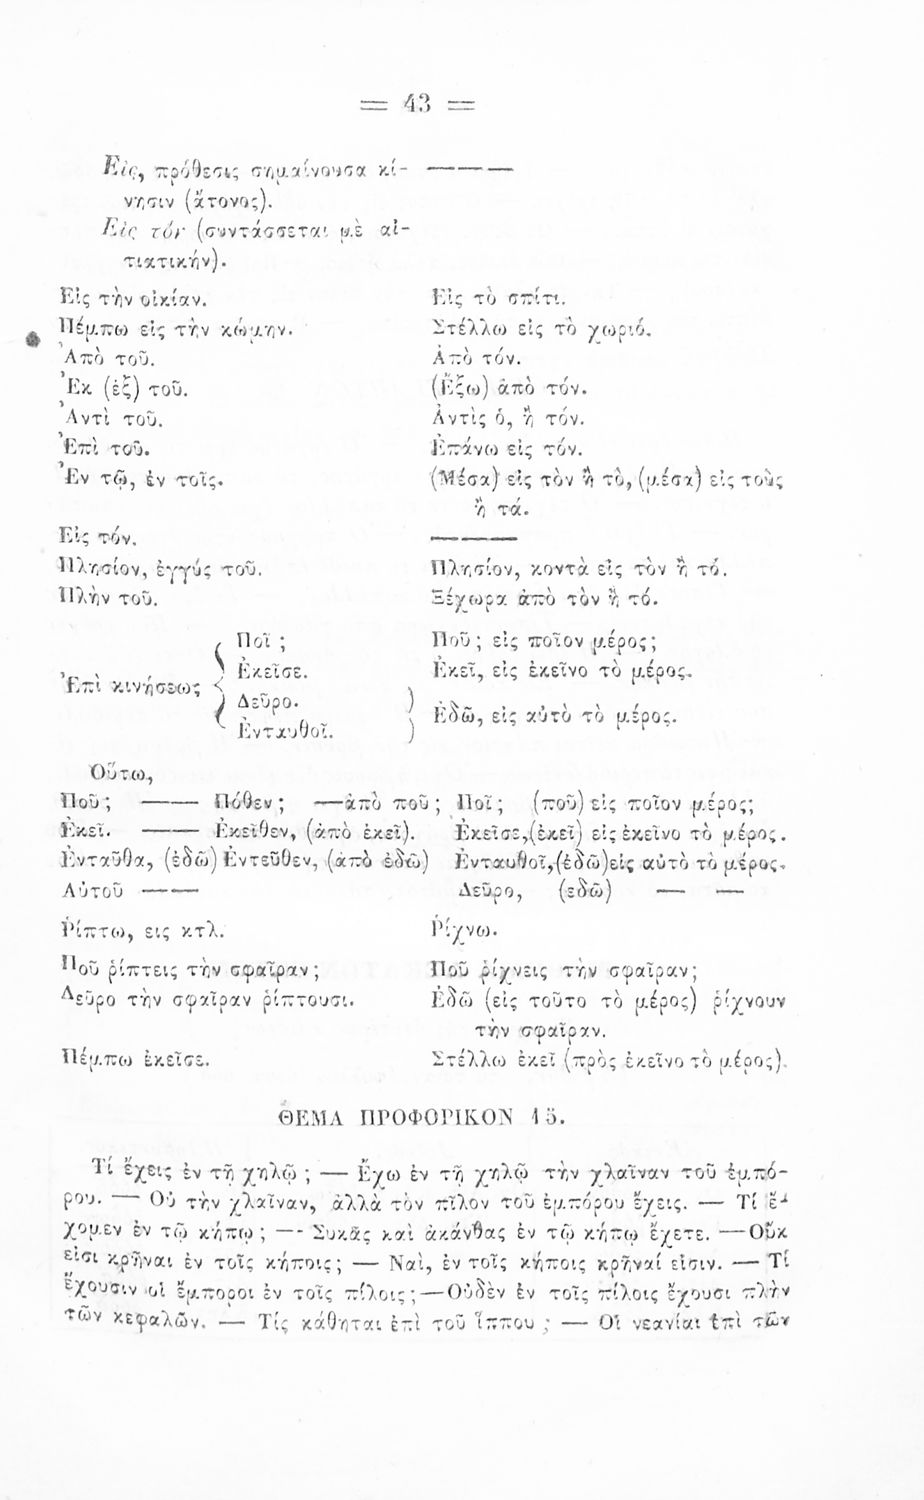 = 43 =
Εἰς, πρόθεσις σημαίνουσα κί- ———
νησιν (ἄτονος).
Εἰς τόν (συντάσσεται μὲ αἰ-
τιατικήν).
Εἰς τὴν οἰκίαν. Εἰς τὸ σπίτι.
Πέμπω εἰς τὴν κώμην. Στέλλω εἰς τὸ χωριό.
Ἀπὸ τοῦ. Ἀπὸ τόν.
Ἐκ (ἐξ) τοῦ. (Ἔξω) ἀπὸ τόν.
Ἀντὶ τοῦ. Ἀντὶς ὁ, ἢ τόν.
Ἐπὶ τοῦ. Ἐπάνω εἰς τόν.
Ἐν τῷ, ἐν τοῖς. (Μέσα) εἰς τὸν ἢ τὸ, (μέσα) εἰς τοὺς
ἢ τά.
Εἰς τόν. ———
Πλησίον, ἐγγύς τοῦ. Πλησίον, κοντὰ εἰς τὸν ἢ τό.
Πλὴν τοῦ. Ξέχωρα ἀπὸ τὸν ἢ τό.
Ποῖ ; Ποῦ; εἰς ποῖον μέρος;
Ἐκεῖσε. Ἐκεῖ, εἰς ἐκεῖνο τὸ μέρος.
Ἐπὶ κινήσεως
Δεῦρο.
Ἐδῶ, εἰς αὐτὸ τὸ μέρος.
Ἐνταυθοῖ.
Οὕτω,
Ποῦ; —— Πόθεν; —ἀπὸ ποῦ; Ποῖ; (ποῦ) εἰς ποῖον μέρος;
Ἐκεῖ. —— Ἐκεῖθεν, (ἀπὸ ἐκεῖ). Ἐκεῖσε,(ἐκεῖ) εἰς ἐκεῖνο τὸ μέρος.
Ἐνταῦθα, (ἐδῶ) Ἐντεῦθεν, (ἀπὸ ἐδῶ) Ἐνταυθοῖ,(ἐδῶ)εἰς αὐτὸ τὸ μέρος.
Αὐτοῦ —— Δεῦρο, (εδῶ) — —
Ῥίπτω, εις κτλ. Ῥίχνω.
Ποῦ ῥίπτεις τὴν σφαῖραν; Ποῦ ῥίχνεις τὴν σφαῖραν;
Δεῦρο τὴν σφαῖραν ῥίπτουσι. Ἐδῶ (εἰς τοῦτο τὸ μέρος) ῥίχνουν
τὴν σφαῖραν.
Πέμπω ἐκεῖσε. Στέλλω ἐκεῖ (πρὸς ἐκεῖνο τὸ μέρος).
ΘΕΜΑ ΠΡΟΦΟΡΙΚΟΝ 15.
Τί ἔχεις ἐν τῇ χηλῷ ; — Ἔχω ἐν τῇ χηλῷ τὴν χλαῖναν τοῦ ἐμπό-
ρου. — Οὐ τὴν χλαῖναν, ἀλλὰ τὸν πῖλον τοῦ ἐμπόρου ἔχεις. — Τί ἔ-
χομεν ἐν τῷ κήπῳ; — Συκᾶς καὶ ἀκάνθας ἐν τῷ κήπῳ ἔχετε. —Οὔκ
εἰσι κρῆναι ἐν τοῖς κήποις; — Ναὶ, ἐν τοῖς κήποις κρῆναί εἰσιν. — Τί
ἔχουσιν οἱ ἔμποροι ἐν τοῖς πίλοις;—Οὐδὲν ἐν τοῖς πίλοις ἔχουσι πλὴν
τῶν κεφαλῶν. — Τίς κάθηται ἐπὶ τοῦ ἵππου ; — Οἱ νεανίαι ἐπὶ τῶν